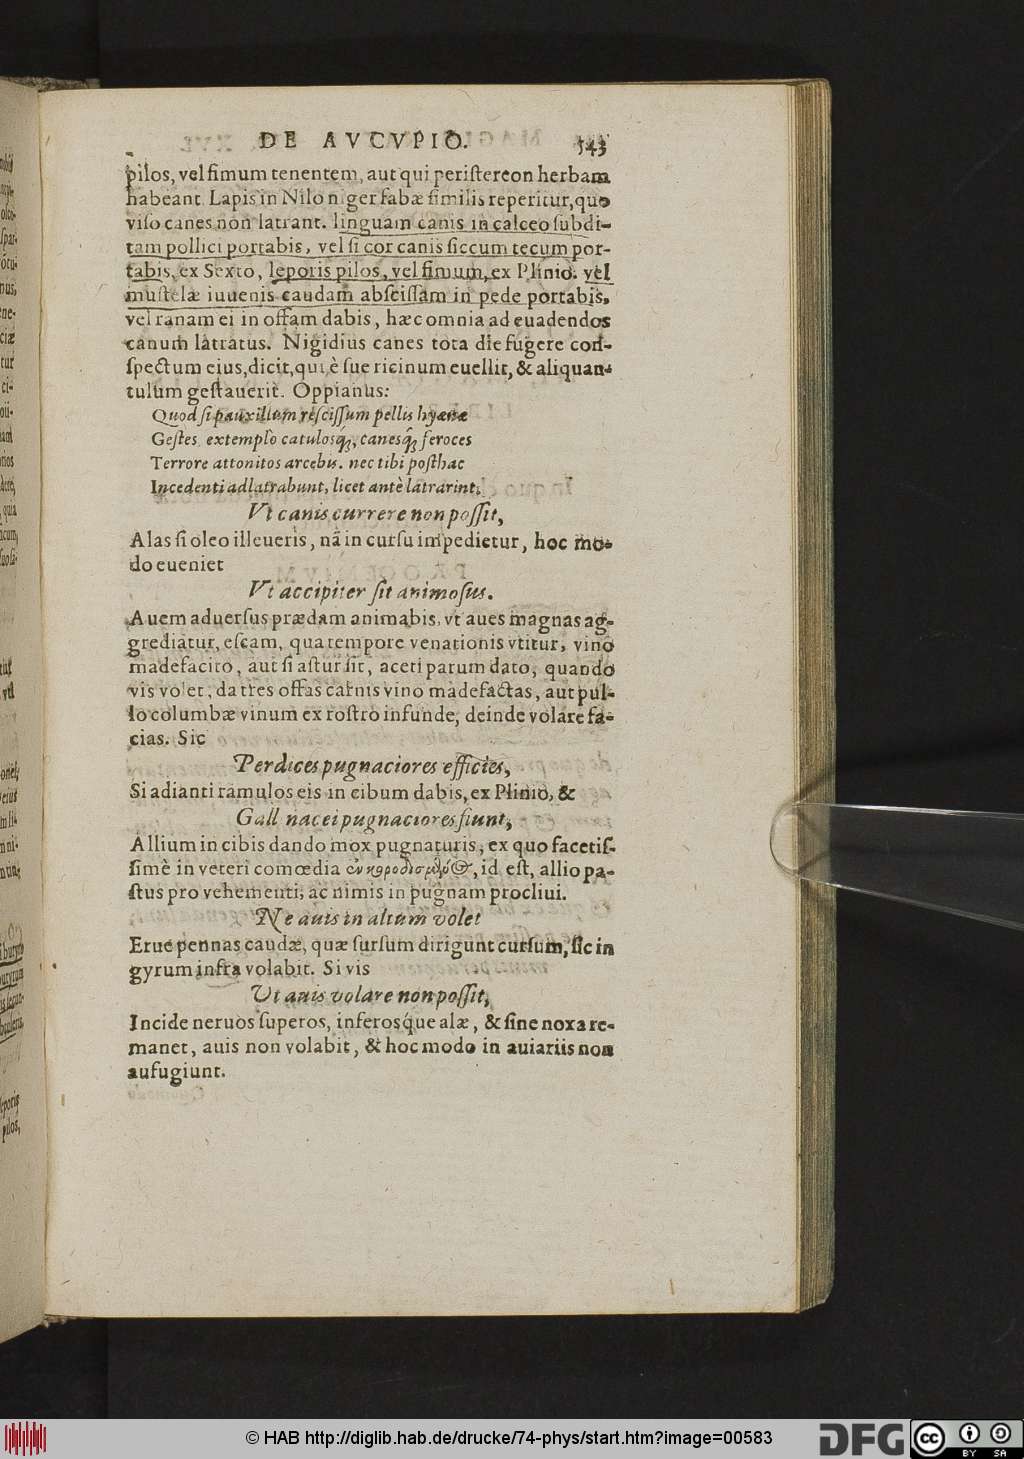 DE AVCVPIO. 543
pilos, vel fimum tenentem, aut qui peristereon herbam
habeant. Lapis in Nilo niger fabæ similis reperitur, quo
viso canes non latrant. linguam canis in calceo subdi-
tam pollici portabis, vel si cor canis siccum tecum por-
tabis, ex Sexto, leporis pilos, vel fimum, ex Plinio. vel
mustelæ iuuenis caudam abscissam in pede portabis,
vel ranam ei in offam dabis, hæc omnia ad euadendos
canum latratus. Nigidius canes tota die fugere con-
spectum eius, dicit, qui è sue ricinum euellit, & aliquan-
tulum gestauerit. Oppianus:
Quod si pauxillum rescissum pellis hyænæ
Gestes, extemplo catulosq́;, canesq́; feroces
Terrore attonitos arcebis. nec tibi posthac
Incedenti adlatrabunt, licet antè latrarint.
Vt canis currere non possit,
Alas si oleo illeueris, nā in cursu impedietur, hoc mo-
do eueniet
Vt accipiter sit animosus.
Auem aduersus prædam animabis, vt aues magnas ag-
grediatur, escam, qua tempore venationis vtitur, vino
madefacito, aut si astur sit, aceti parum dato, quando
vis volet, da tres offas carnis vino madefactas, aut pul-
lo columbæ vinum ex rostro infunde, deinde volare fa-
cias. Sic
Perdices pugnaciores efficies,
Si adianti ramulos eis in cibum dabis, ex Plinio, &
Gallinacei pugnaciores fiunt,
Allium in cibis dando mox pugnaturis, ex quo facetis-
simè in veteri comœdia, id est, allio pa-
stus pro vehementi, ac nimis in pugnam procliui.
Ne auis in altum volet
Erue pennas caudæ, quæ sursum dirigunt cursum, sic in
gyrum infra volabit. Si vis
Vt auis volare non possit,
Incide neruos superos, inferosque alæ, & sine noxa re-
manet, auis non volabit, & hoc modo in auiariis non
aufugiunt.
© HAB http://diglib.hab.de/drucke/74-phys/start.htm?image=00583
DFG
cc BY SA